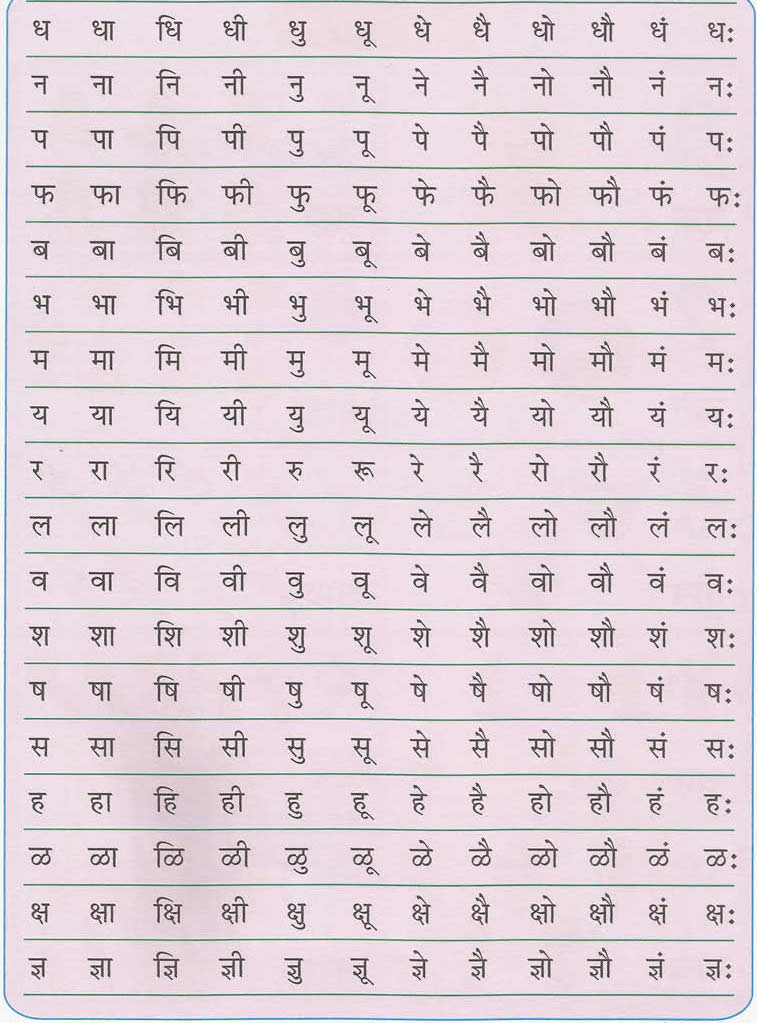 ध धा धि धी धु धू धे धै धो धौ धं धः
न ना नि नी नु नू ने नै नो नौ नं नः
प पा पि पी पु पू पे पै पो पौ पं पः
फ फा फि फी फु फू फे फै फो फौ फं फः
ब बा बि बी बु बू बे बै बो बौ बं बः
भ भा भि भी भु भू भे भै भो भौ भं भः
म मा मि मी मु मू मे मै मो मौ मं मः
य या यि यी यु यू ये यै यो यौ यं यः
र रा रि री रु रू रे रै रो रौ रं रः
ल ला लि ली लु लू ले लै लो लौ लं लः
व वा वि वी वु वू वे वै वो वौ वं वः
श शा शि शी शु शू शे शै शो शौ शं शः
ष षा षि षी षु षू षे षै षो षौ षं षः
स सा सि सी सु सू से सै सो सौ सं सः
ह हा हि ही हु हू हे है हो हौ हं हः
ळ ळा ळि ळी ळु ळू ळे ळै ळो ळौ ळं ळः
क्ष क्षा क्षि क्षी क्षु क्षू क्षे क्षै क्षो क्षौ क्षं क्षः
ज्ञ ज्ञा ज्ञि ज्ञी ज्ञु ज्ञू ज्ञे ज्ञै ज्ञो ज्ञौ ज्ञं ज्ञः